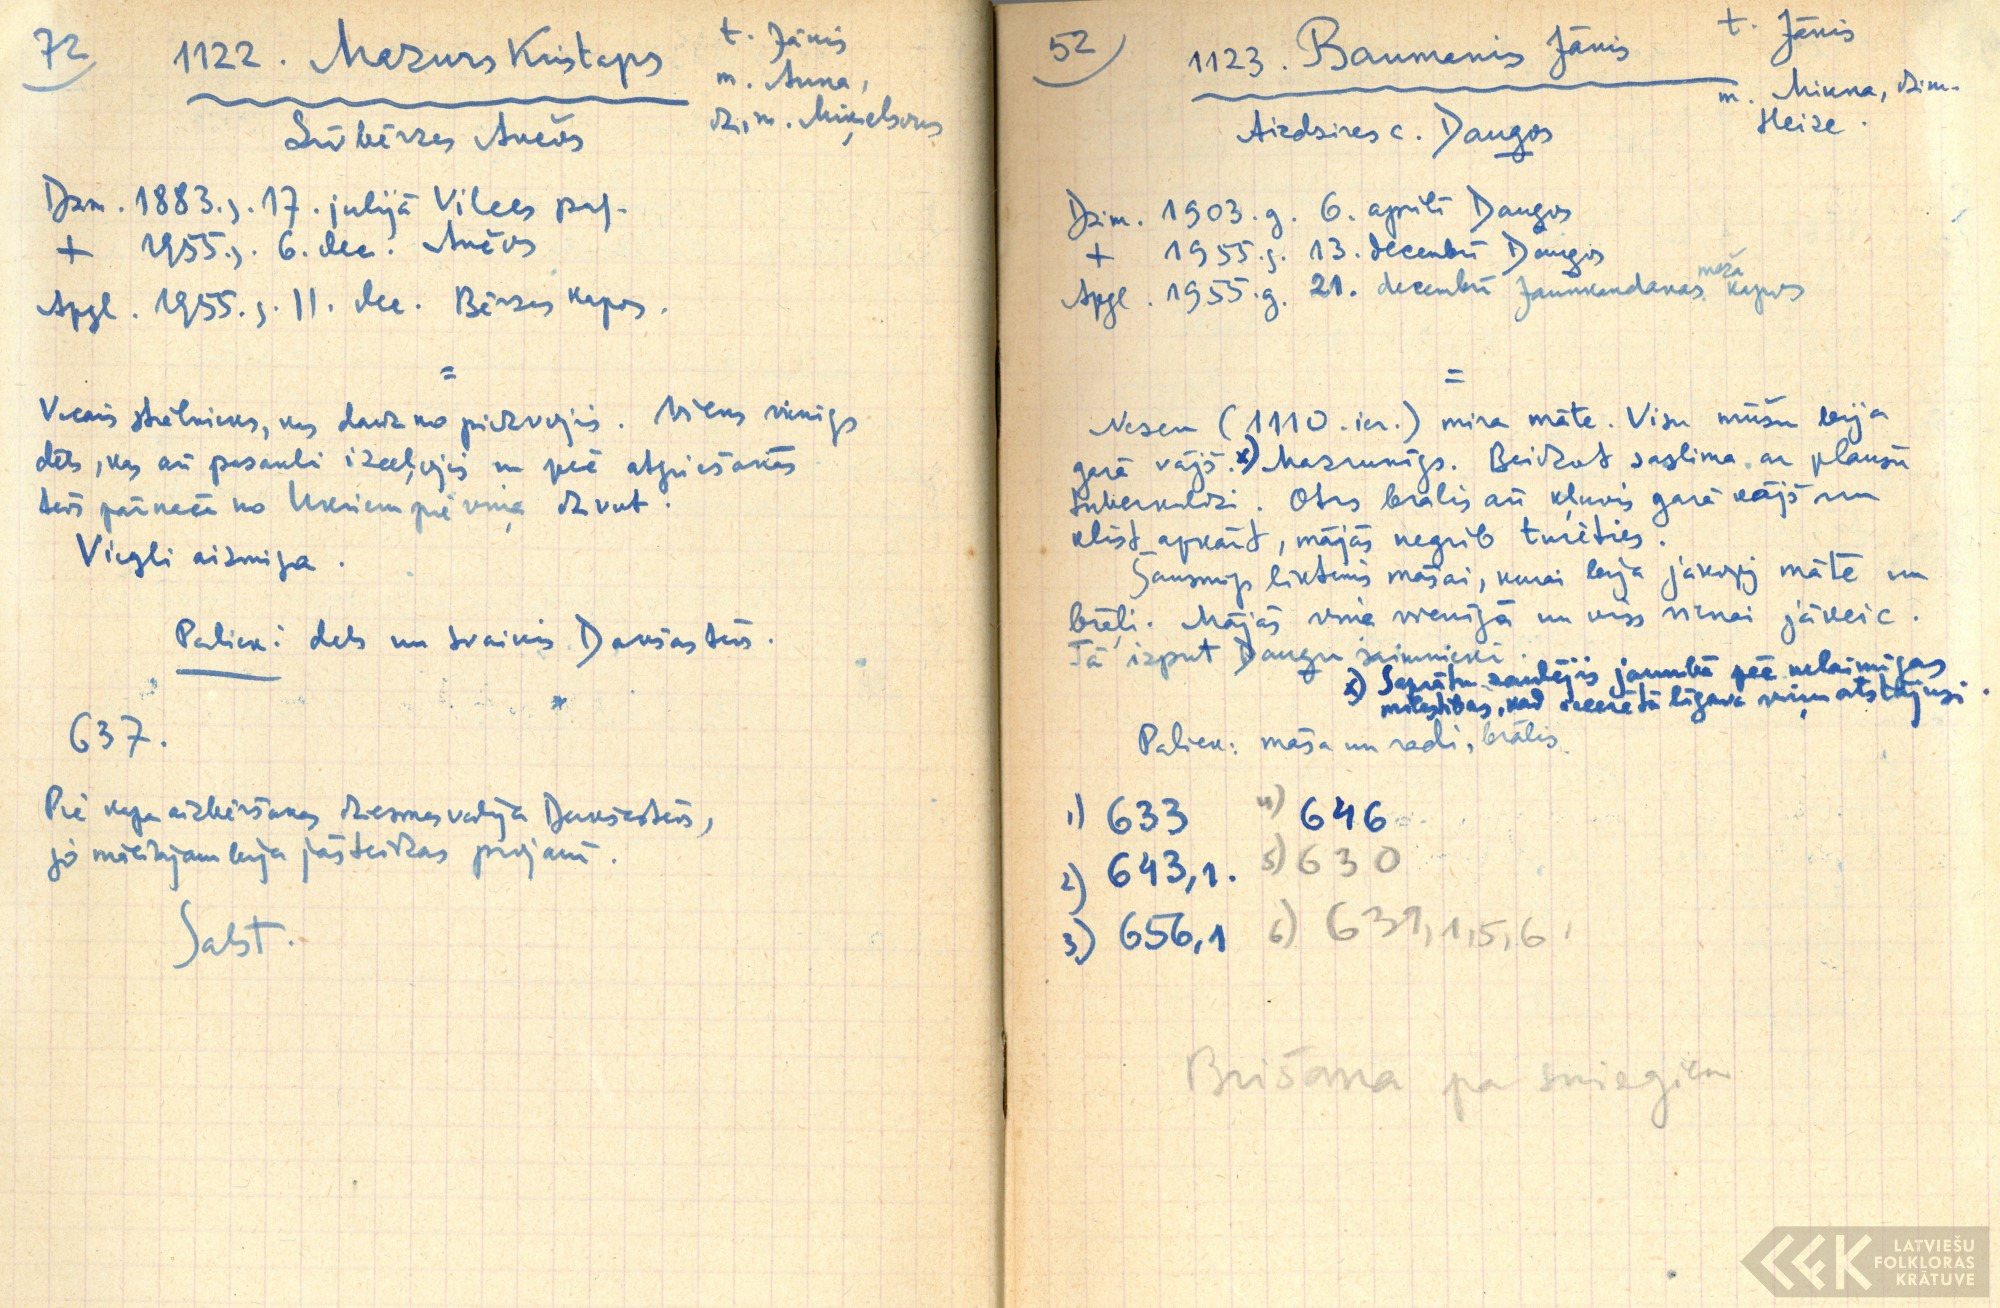 72
1122. Mazurs Kristaps
t. Jānis
m. Anna,
dzim. Miķelsons
Lūkbērzes Ančōs
Dzm. 1883.g. 17. julijā Vilces pag.
+ 1955.g. 6. dec. Ančōs
Apgl. 1955.g. 11. dec. Bērzes kapos.
=
Vecais strēlnieks, kas daudz ko piedzīvojis. Viens vienīgs
dēls, kas arī pasauli izceļojis un pēc atgriešanās
tēvs pārnācā no Ukriem pie viņa dzīvot.
Viegli aizmiga.
Paliek: dēls un svainis Dakšasteis.
637.
Pie kapa aizbēršanas dziesmas vadīja Dakšasteis,
jo mācītājam bija jāsteidzas projām.
Salst.
52
1123. Baumanis Jānis
t. Jānis
m. Minna, dzim.
Heize.
Aizdzires c. Daugos
Dzim. 1903.g. 6. aprilī Daugos
+ 1955.g. 13. decembrī Daugos
meža
Apgl. 1955.g. 21. decembrī Jaunkandavas kapos
=
Nesen (1110. ier.) mira māte. Visu mūžu bija
garā vājš. x) Mazrunīgs. Beidzot saslima ar plaušu
tuberkulozi. Otrs brālis arī kļuvis garā vājš un
klīst apkārt, mājās negrib turēties.
Šausmīgs liktenis māsai, kurai bija jākopj māte un
brāļi. Mājās viņa vienīgā un viss vienai jāveic.
Tā izput Daugu saimnieki.
x) Saprātu zaudējis jaunībā pēc nelaimīgas
mīlestības, kad iecerētā līgava viņu atstājusi.
Paliek: māsa un radi, brālis.
1) 633 4) 646
2) 643,1. 5) 630
3) 656,1 6) 631,1,5,6.
Brišana pa sniegiem
LATVIEŠU
FOLKLORAS
KRĀTUVE